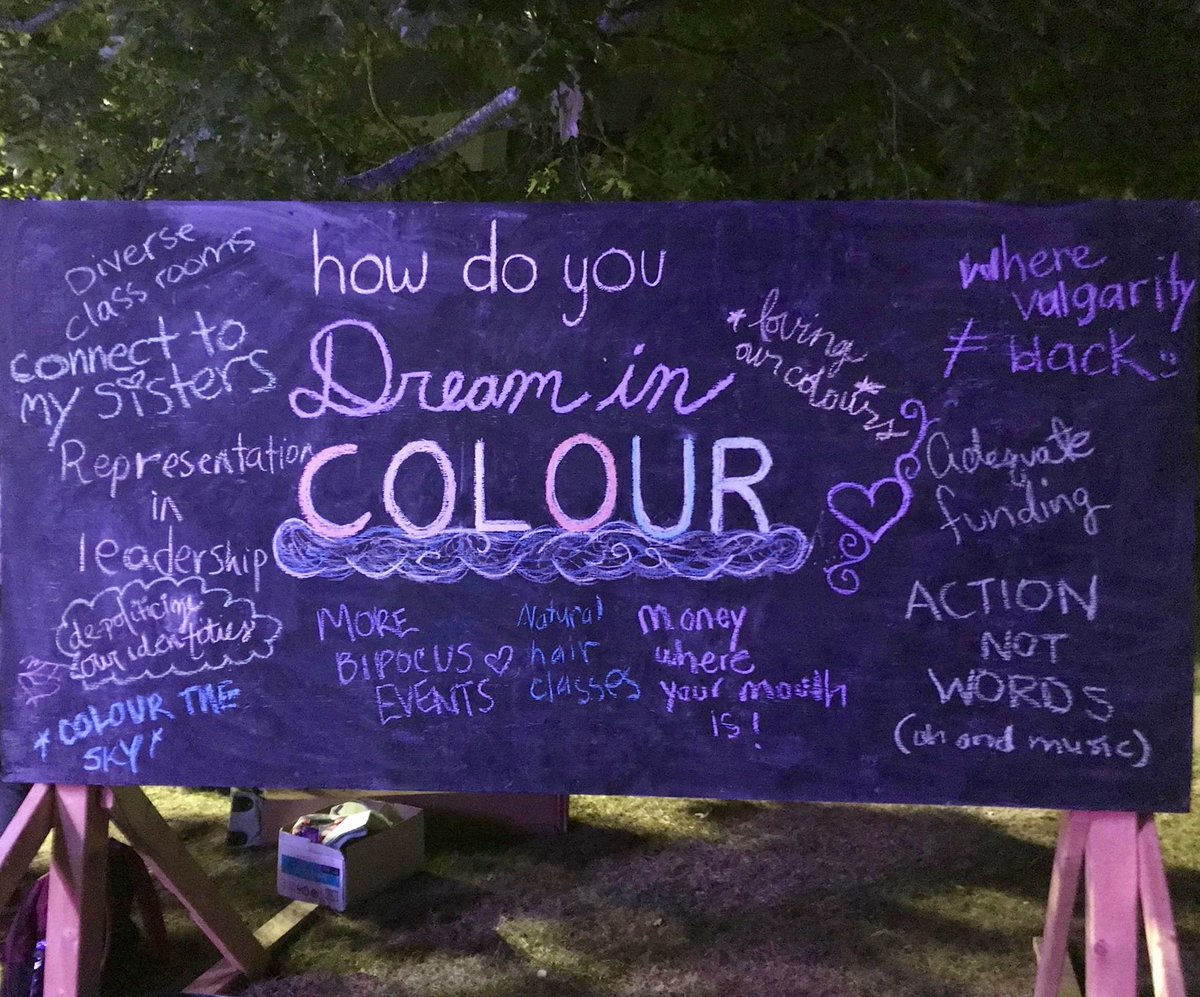 how do you
Dream in
COLOUR
Diverse
class rooms
connect to
my sisters
Representation
in
leadership
de-politicize
our identities
*COLOUR THE
SKY*
MORE
BIPOCUS
EVENTS
Natural
hair
classes
money
where
your mouth
is!
*loving
our colours*
where
valgarity
≠ black
Adequate
funding
ACTION
NOT
WORDS
(oh and music)